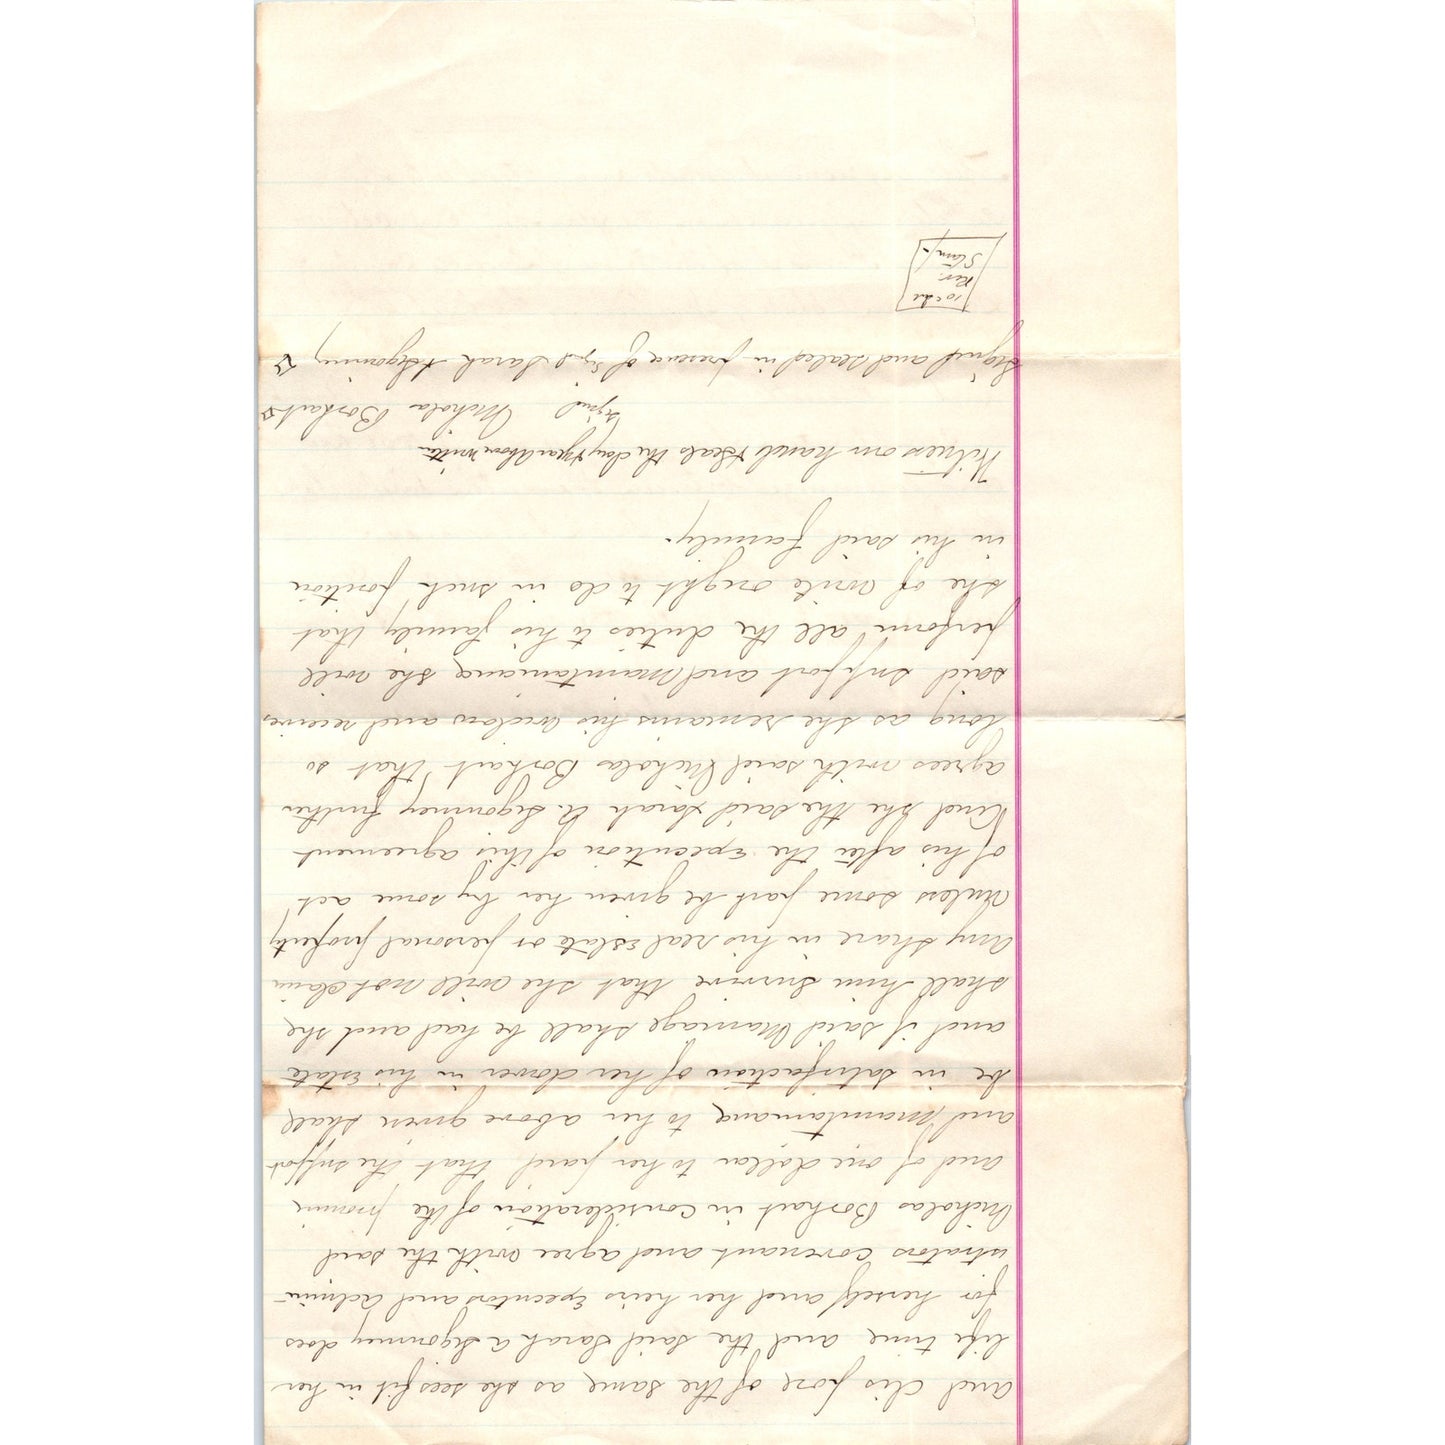 and dispose of the same as she sees fit in her
life time and the said Sarah A Sigourney does
for herself and her heirs Executors and Admin-
istrators covenant and agree with the said
Nicholas Borhart in consideration of the promise
and of one dollar to her paid that the support
and Maintainance to her above given shall
be in satisfaction of her dower in his Estate
and if said Marriage shall be had and she
shall him survive that she will not claim
any share in his real Estate or personal property
Unless some part be given her by some act
of his after the Execution of this agreement
And she the said Sarah A. Sigourney further
agrees with said Nichola Borhart that so
long as she remains his widow and receives
said support and Maintainance she will
perform all the duties to his family that
she of wife ought to do in such position
in his said family.
Witness our hand & Seals the day & year above written
Signed Nichola Borhart
Signed and sealed in presence of Sgd Sarah Sigourney
10 cts
Rev.
Stamp